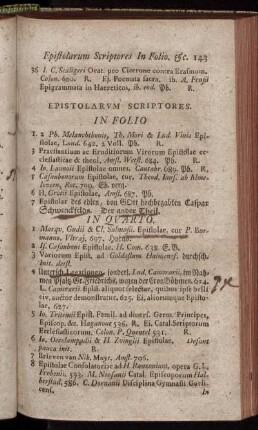 Epistolarum Scriptores In Folio, &c. 143
36 I. C. Scaligeri Orat. pro Cicerone contra Erasmum.
Colon. 600. R. Ej. Poemata sacra. ib. A. Frusii
Epigrammata in Haereticos, ib. eod. Pb. R.
EPISTOLARVM SCRIPTORES.
IN FOLIO
1. 2 Ph. Melanchthonis, Th. Mori & Lud. Vivis Epi-
stolae, Lond. 642. 2 Voll. Pb. R.
3 Praestantium ac Eruditorum Virorum Epistolae ec-
clesiasticae & theol. Amst. Wetst. 684. Pb. R.
4 Io. Launoii Epistolae omnes. Cantabr. 689. Pb. R.
5 Casaubonorum Epistolae, cur. Theod. Ians. ab Alme-
loveen, Rot. 709. Eb. verg.
6 H. Grotii Epistolae, Amst. 687. Pb.
7 Epistolar des edlen, von GOtt hochbegabten Caspar
Schwenckfelds. Der ander Theil.
IN QUARTO.
1. Marqu. Gudii & Cl. Salmasii. Epistolae, cur P. Bur-
manno, Vltraj. 697.
2 If. Casauboni Epistolae. H. Com. 638. E. B.
3 Variorum Epist. ad Goldastum
4
Pfaltz Gr. Friedrichs, wegen der Cron Böhmen. 624.
L. Camerarii Epist. aliquot
auctor demonstratur. 625. Ej. aliorumque Epistolae,
627.
5 Io. Tritemii Epist. Famil. ad divers. Germ. Principes,
Episcop. &c. Haganoae 536. R. Ej. Catal. Scriptorum
Ecclesiasticorum. Colon. P. Quentel 531. R.
6 Io. Oecolampadii & H. Zvinglii Epistolae, Desunt
pauca init. R.
7 Brieven van Nik. Amst. 706.
8 Epistolae Consolatoriae ad H. opera G. I.,
Frobenii. 593. M. Catal. Episcoporum Hal-
berstad. 586. C. Dornavii Disciplina Gymnasii Gorli-
censi.
In